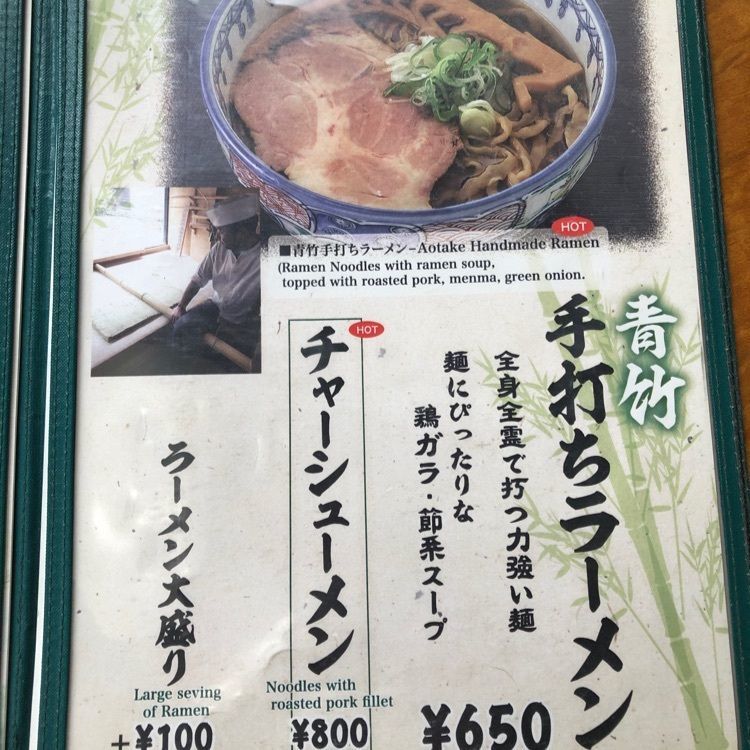 HOT
■青竹手打ちラーメン–Aotake Handmade Ramen
(Ramen Noodles with ramen soup,
topped with roasted pork, menma, green onion.
青竹
手打ちラーメン
全身全霊で打つ力強い麺
麺にぴったりな
鶏ガラ・節系スープ
¥650
HOT
チャーシューメン
Noodles with
roasted pork fillet
¥800
ラーメン大盛り
Large seving
of Ramen
+¥100